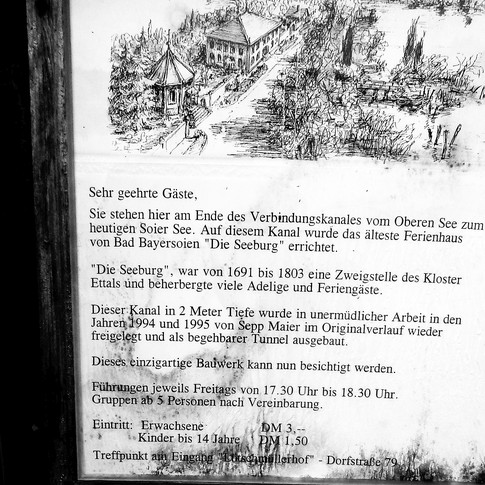 Sehr geehrte Gäste,
Sie stehen hier am Ende des Verbindungskanales vom Oberen See zum
heutigen Soier See. Auf diesem Kanal wurde das älteste Ferienhaus
von Bad Bayersoien "Die Seeburg" errichtet.
"Die Seeburg", war von 1691 bis 1803 eine Zweigstelle des Kloster
Ettals und beherbergte viele Adelige und Feriengäste.
Dieser Kanal in 2 Meter Tiefe wurde in unermüdlicher Arbeit in den
Jahren 1994 und 1995 von Sepp Maier im Originalverlauf wieder
freigelegt und als begehbarer Tunnel ausgebaut.
Dieses einzigartige Bauwerk kann nun besichtigt werden.
Führungen jeweils Freitags von 17.30 Uhr bis 18.30 Uhr.
Gruppen ab 5 Personen nach Vereinbarung.
Eintritt: Erwachsene DM 3,--
Kinder bis 14 Jahre DM 1,50
Treffpunkt am Eingang - Dorfstraße 79